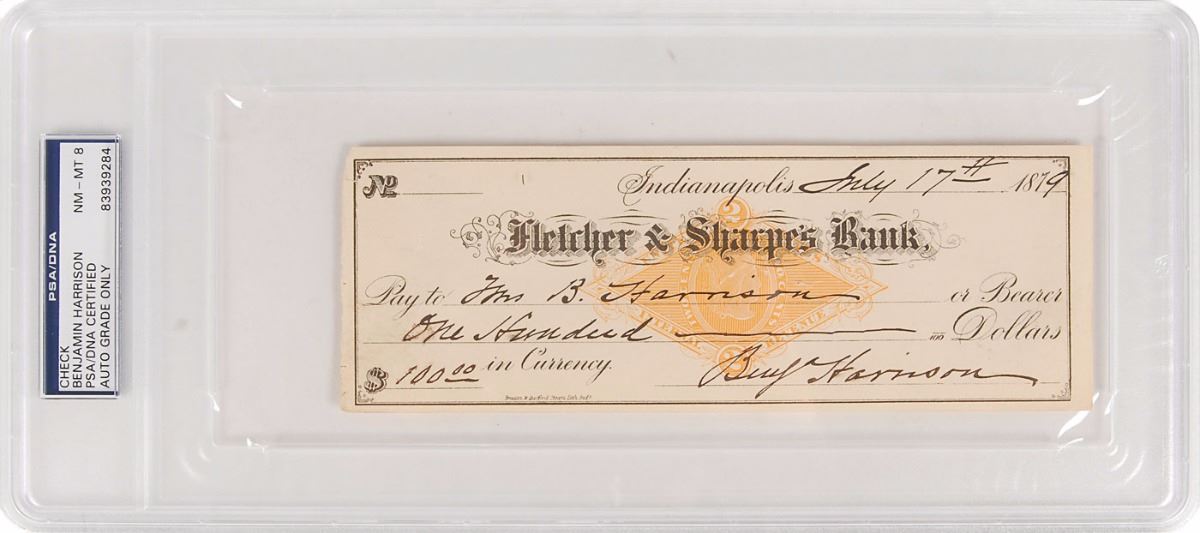 PSA/DNA
CHECK NM - MT 8
BENJAMIN HARRISON 83939284
PSA/DNA CERTIFIED
AUTO GRADE ONLY
No
Indianapolis July 17th 1879
Fletcher & Sharpe's Bank.
2
Pay to B. Harrison or Bearer
One Hundred 100 Dollars
INTERNAL REVENUE
$ 100.00 in Currency.
2
Benj Harrison